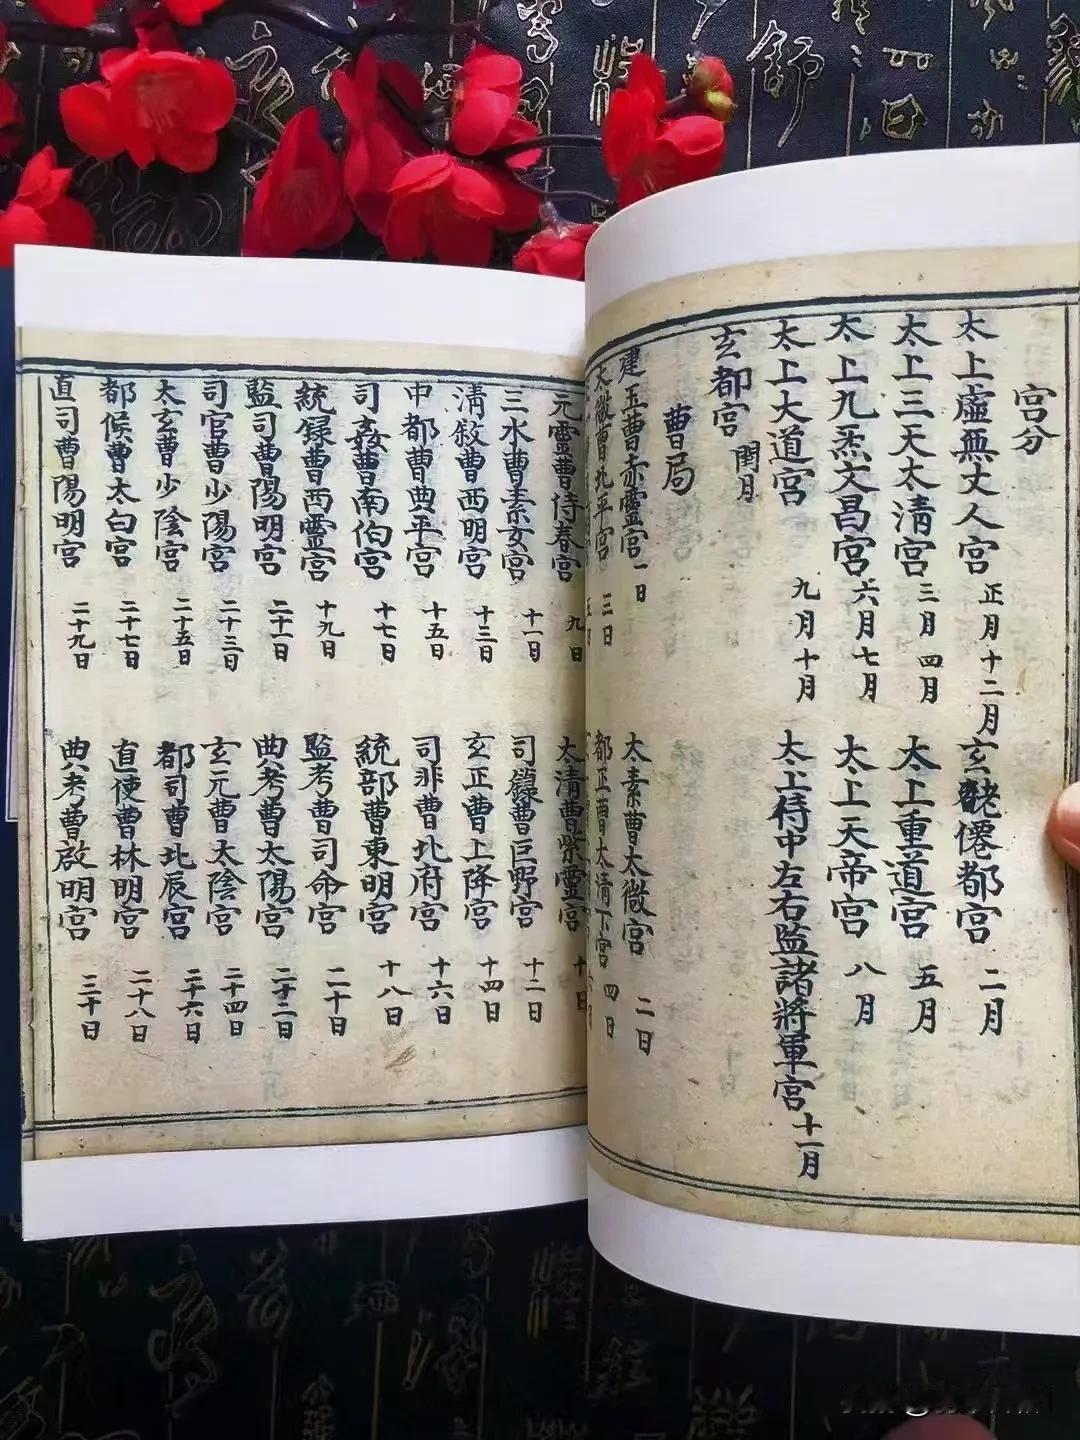 宫分
太上虛無丈人宫 正月十二月 玄䰡僊都宫 二月
太上三天太清宫 三月四月 太上重道宫 五月
太上九炁文昌宫 六月七月 太上天帝宫 八月
太上大道宫 九月十月 太上侍中左右監諸將軍宫 十一月
玄都宫 閏月
曹局
建玉曹赤靈宫 一日 太素曹太微宫 二日
太微曹北平宫 三日 都正曹太清下宫 四日
元靈曹侍春宫 九日 太清曹紫靈宫 十日
三水曹素女宫 十一日 司錄曹巨野宫 十二日
清叙曹西明宫 十三日 玄正曹上降宫 十四日
中都曹典平宫 十五日 司非曹北府宫 十六日
司姦曹南伯宫 十七日 統部曹東明宫 十八日
統録曹西靈宫 十九日 監考曹司命宫 二十日
監司曹陽明宫 二十一日 典考曹太陽宫 二十二日
司官曹少陽宫 二十三日 玄元曹太陰宫 二十四日
太玄曹少陰宫 二十五日 都司曹北辰宫 二十六日
都候曹太白宫 二十七日 直使曹林明宫 二十八日
直司曹陽明宫 二十九日 典考曹啟明宫 三十日